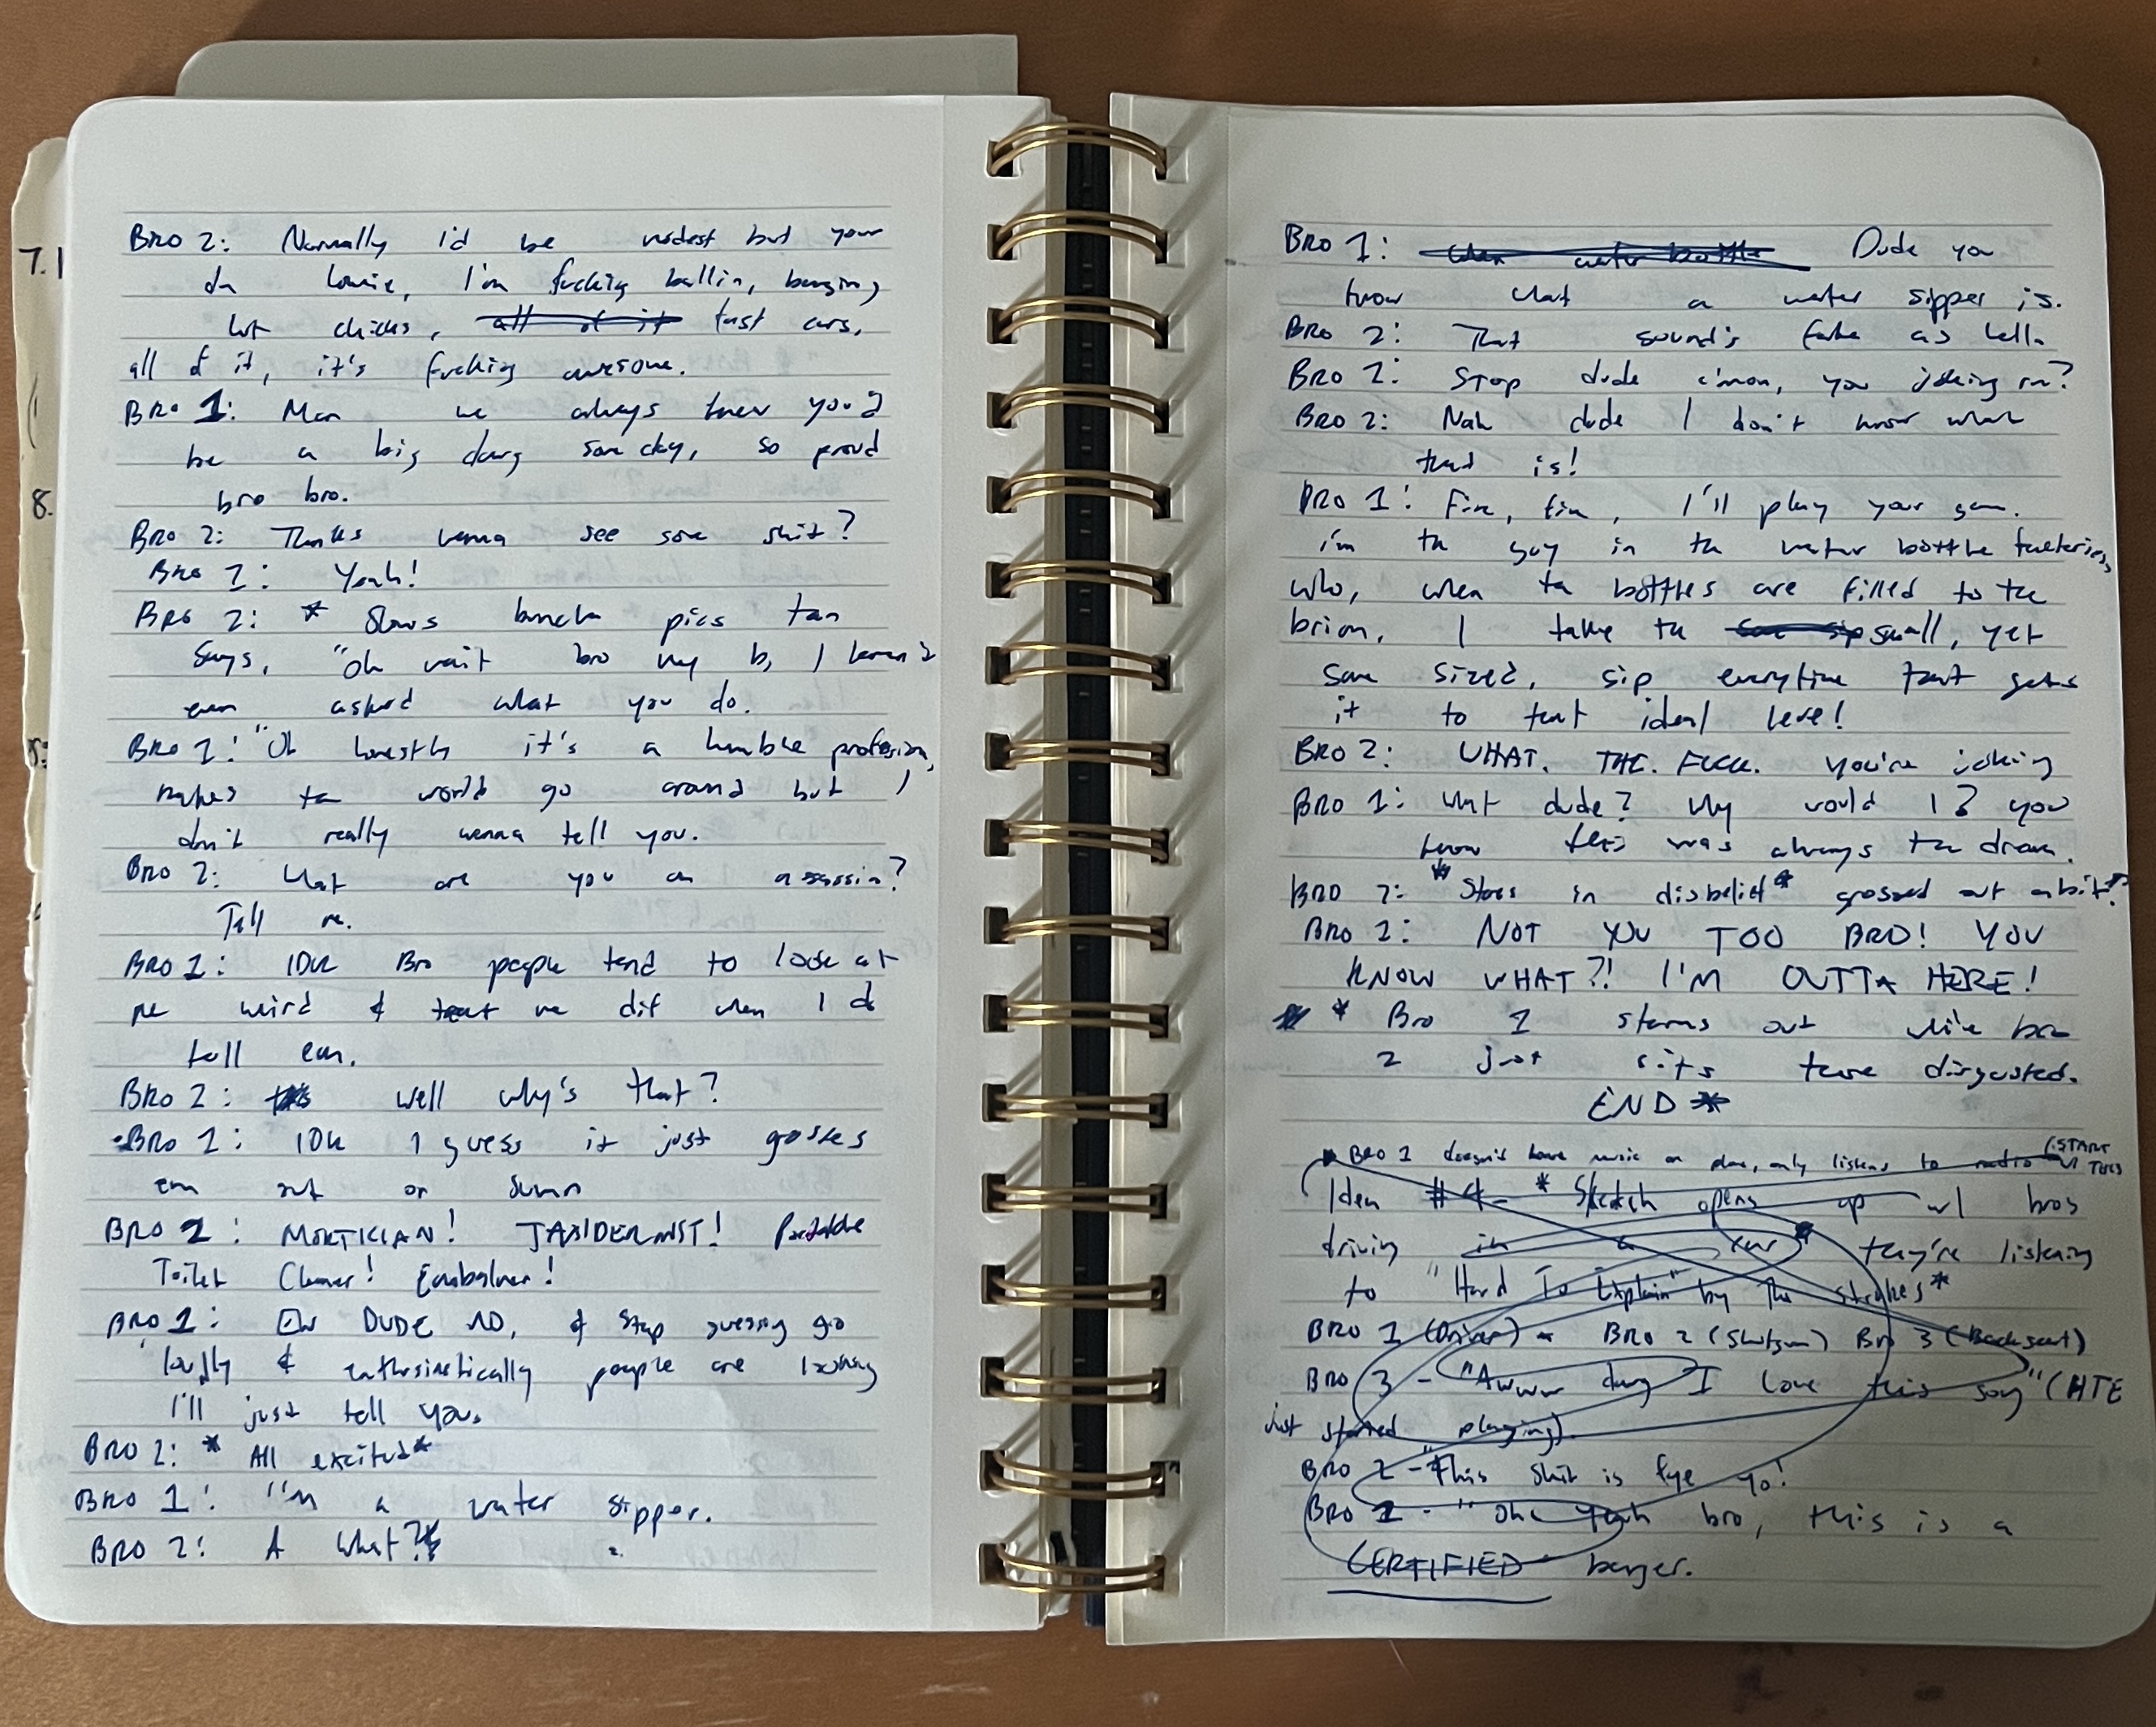 7.1
8.
BRO 2: Normally I'd be modest but your
da homie, I'm fucking ballin, banging
hot chicks, all of it fast cars,
all of it, it's fucking awesome.
BRO 1: Man we always knew you'd
be a big dawg some day, so proud
bro bro.
BRO 2: Thanks wanna see some shit?
BRO 1: Yeah!
BRO 2: * Shows bunch pics tan
Says, "Oh wait bro my b, I haven't
even asked what you do.
BRO 1: "Oh honestly it's a humble profession,
makes the world go around but I
don't really wanna tell you.
BRO 2: What are you an assassin?
Tell me.
BRO 1: IDK Bro people tend to look at
me weird & treat me dif when I do
tell em.
BRO 2: Well why's that?
BRO 1: IDK I guess it just grosses
em out or sumn
BRO 2: MORTICIAN! TAXIDERMIST! Portable
Toilet Cleaner! Embalmer!
BRO 1: EW DUDE NO, & stop guessing so
loudly & enthusiastically people are looking
I'll just tell you.
BRO 2: * All excited*
BRO 1: I'm a water sipper.
BRO 2: A what?!
BRO 1: when water bottle Dude you
know what a water sipper is.
BRO 2: That sound's fake as hell.
BRO 1: Stop dude c'mon, you joking rn?
BRO 2: Nah dude I don't know what
that is!
BRO 1: Fine, fine, I'll play your game.
i'm the guy in the water bottle factories,
who, when the bottles are filled to the
brim, I take the same sip small, yet
same sized, sip everytime that gets
it to that ideal level
BRO 2: WHAT. THE. FUCK. you're joking
BRO 1: What dude? Why would I? you
know this was always the dream.
BRO 2: *Stares in disbelief* grossed out a bit*
BRO 1: NOT YOU TOO BRO! YOU
KNOW WHAT?! I'M OUTTA HERE!
* Bro 1 storms out while bro
2 just sits there disgusted.
END *
* BRO 1 doesn't have music on phone, only listens to radio (START W/ THIS
Idea #4 - * Sketch opens up w/ bros
driving in a car * they're listening
to "Hard To Explain" by The Strokes*
BRO 1 (Driver) - BRO 2 (Shotgun) Bro 3 (Backseat)
BRO 3 - "Awww dawg I love this song" (HTE
just started playing).
BRO 2 - "This shit is fye yo!
BRO 1 - "Oh yeah bro, this is a
CERTIFIED banger.